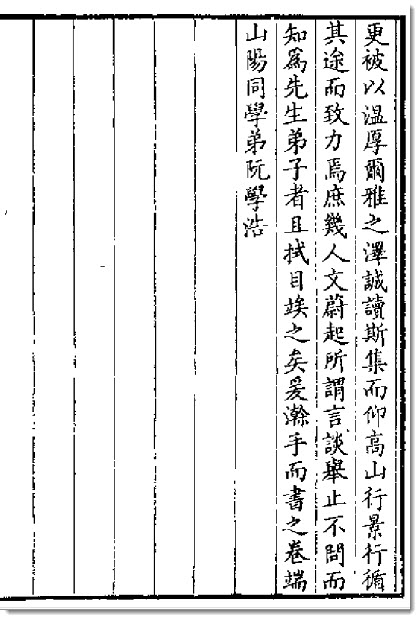 更被以溫厚爾雅之澤誠讀斯集而仰高山行景行循
其途而致力焉庶幾人文蔚起所謂言談舉止不問而
知為先生弟子者且拭目竢之矣爰澣手而書之卷端
山陽同學弟阮學浩